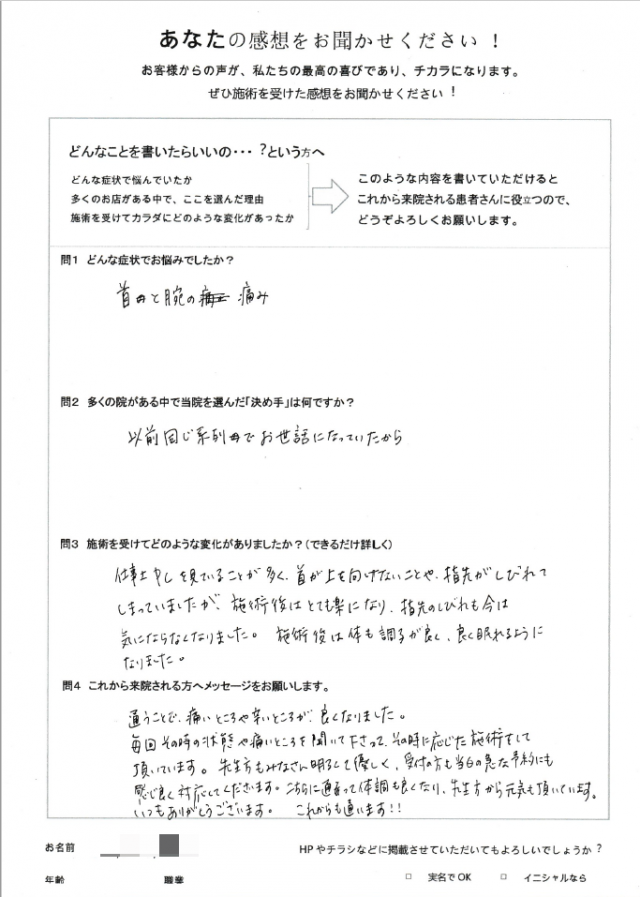 あなたの感想をお聞かせください！
お客様からの声が、私たちの最高の喜びであり、チカラになります。
ぜひ施術を受けた感想をお聞かせください！
どんなことを書いたらいいの・・・？という方へ
どんな症状で悩んでいたか
多くのお店がある中で、ここを選んだ理由
施術を受けてカラダにどのような変化があったか
このような内容を書いていただけると
これから来院される患者さんに役立つので、
どうぞよろしくお願いします。
問1 どんな症状でお悩みでしたか？
首と腕の 痛み
問2 多くの院がある中で当院を選んだ「決め手」は何ですか？
以前同じ系列でお世話になっていたから
問3 施術を受けてどのような変化がありましたか？（できるだけ詳しく）
仕事上 を見ていることが多く、首が上を向けないことや、指先がしびれて
しまっていましたが、施術後はとても楽になり、指先のしびれも今は
気にならなくなりました。 施術後は体も調子が良く、良く眠れるように
なりました。
問4 これから来院される方へメッセージをお願いします。
通うことで、痛いところや辛いところが、良くなりました。
毎回その時の状態や痛いところを聞いて下さって、その時に応じた施術をして
頂いています。先生方もみなさん明るくて優しく、受付の方も当日の急な予約にも
感じ良く対応してくださいます。こちらに通って体調も良くなり、先生方から元気も頂いています。
いつもありがとうございます。 これからも通います！！
お名前
HPやチラシなどに掲載させていただいてもよろしいでしょうか？
年齢 職業 □ 実名でOK □ イニシャルなら